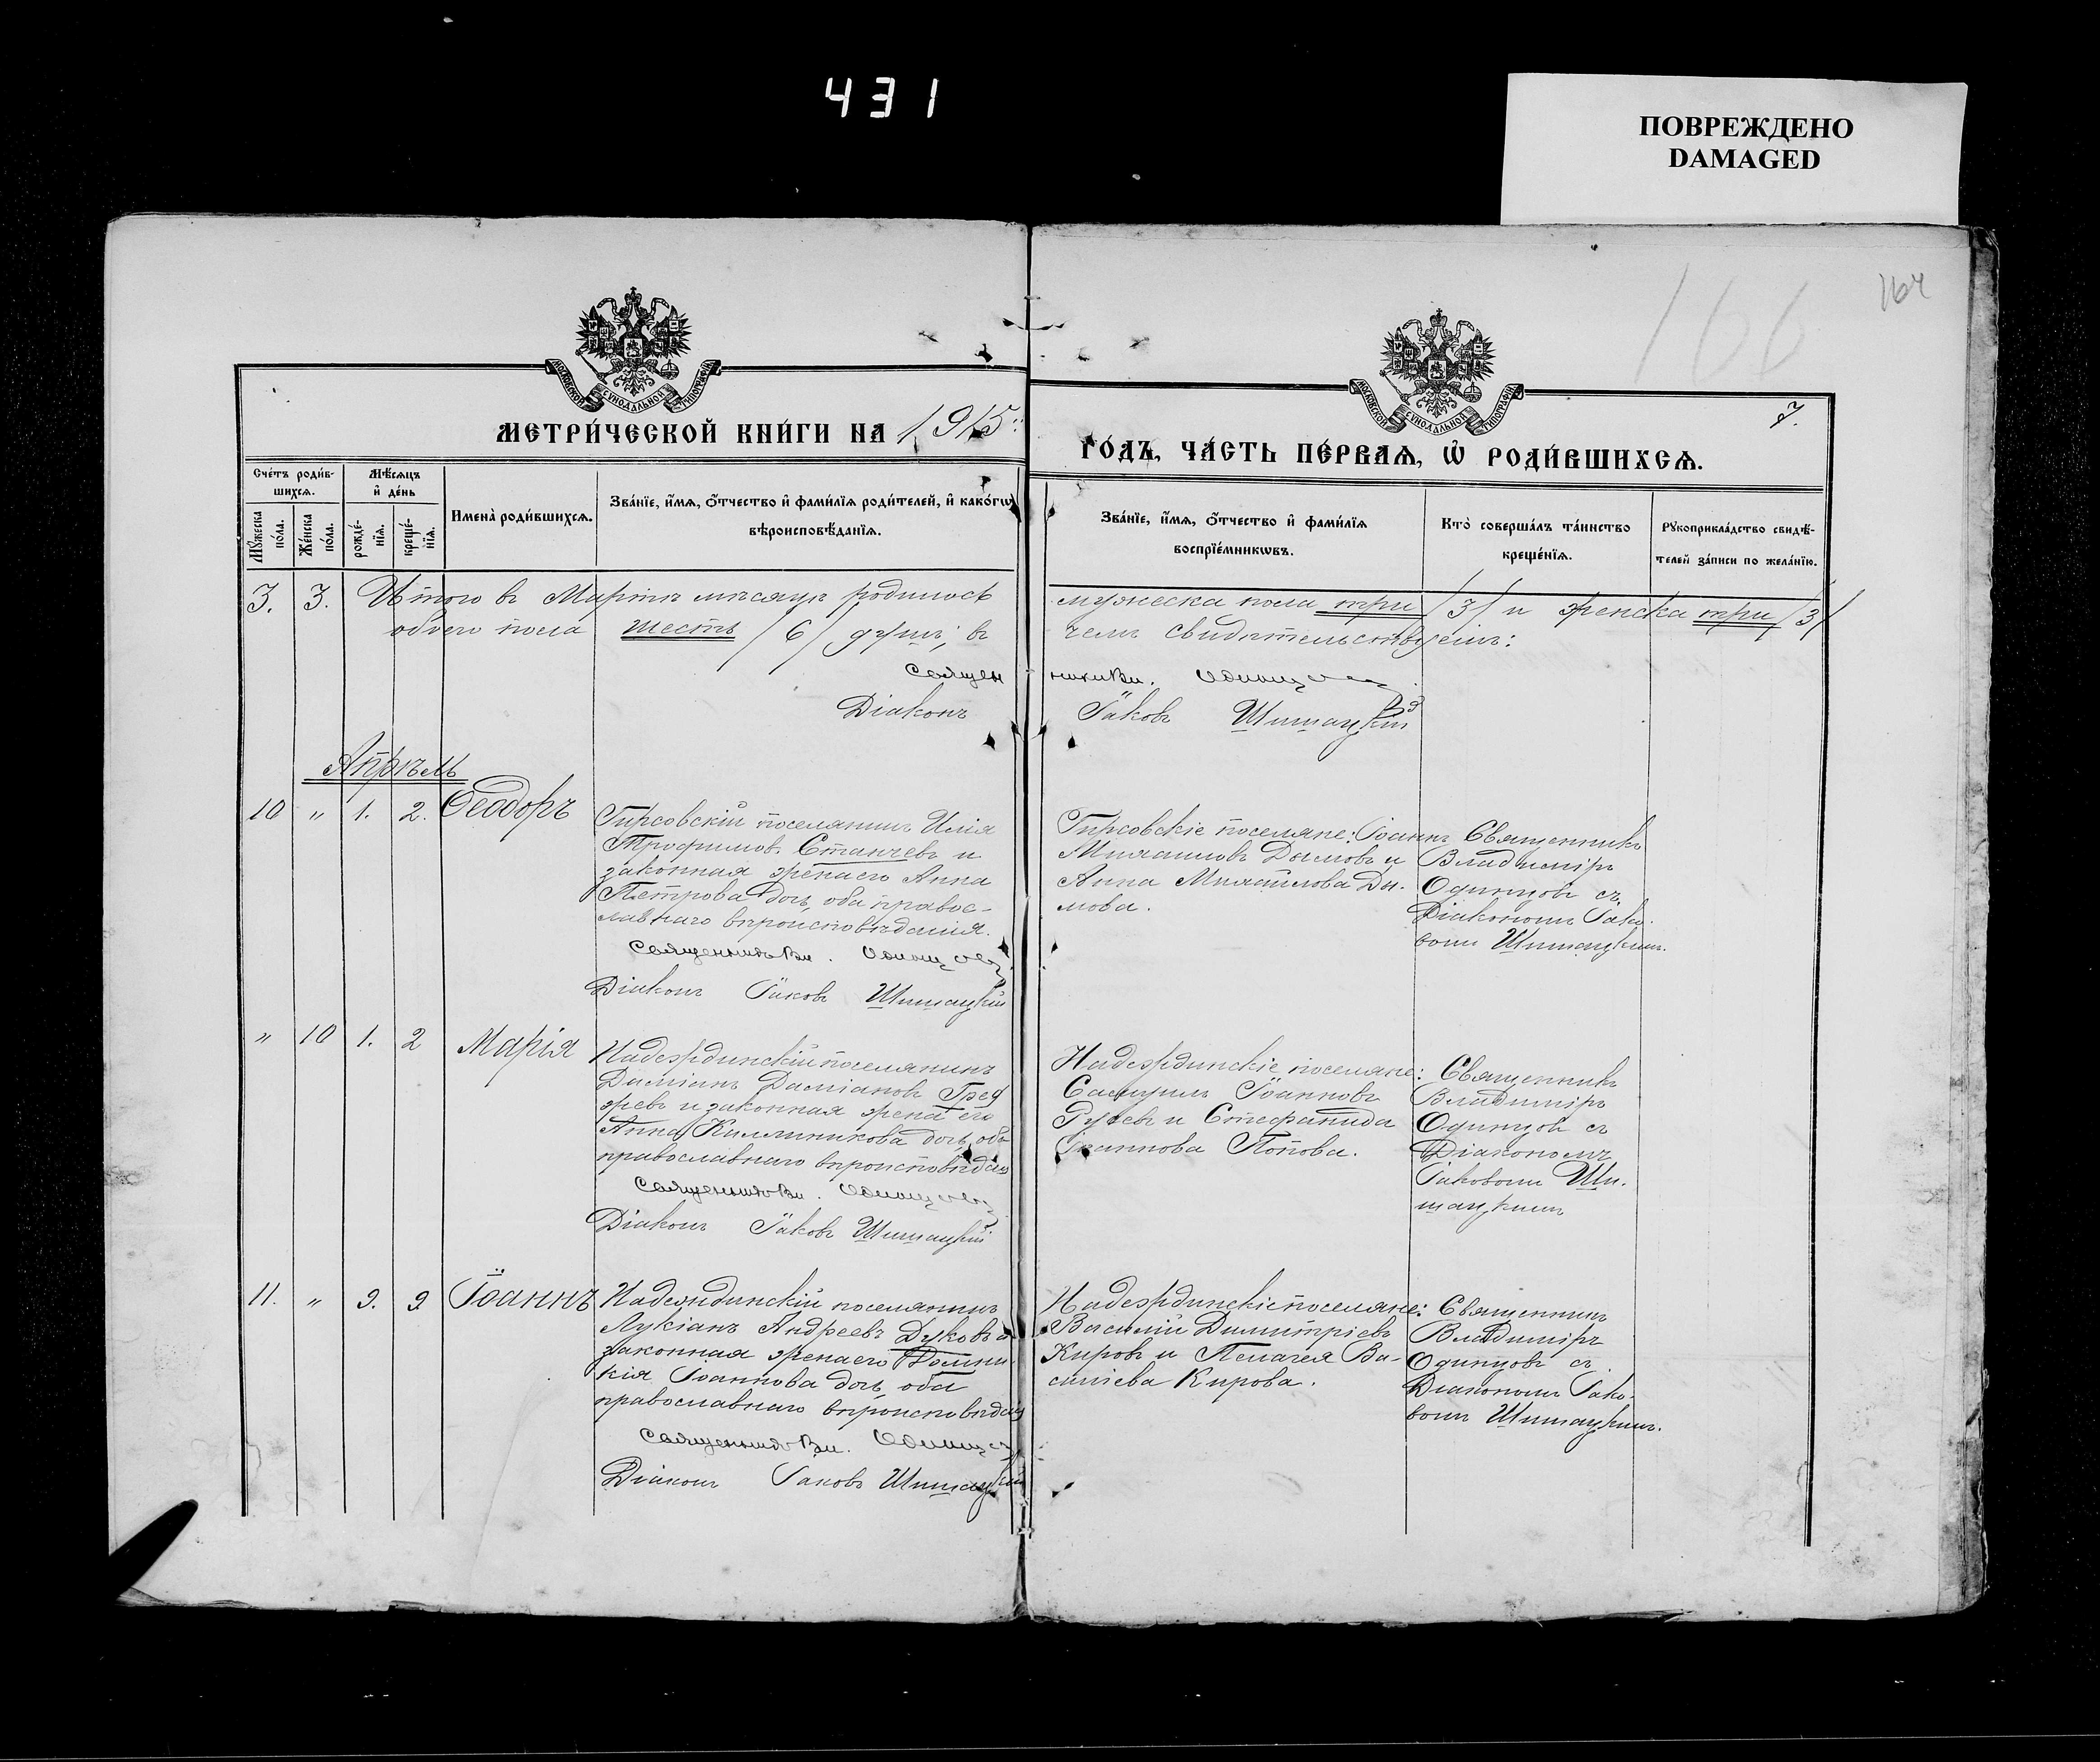 431
ПОВРЕЖДЕНО
DAMAGED
166
164
МОСКОВСКОЙ СУНОДАЛЬНОЙ ТИПОГРАФІИ
МОСКОВСКОЙ СУНОДАЛЬНОЙ ТИПОГРАФІИ
7.
МЕТРИ́ЧЕСКОЙ КНИ́ГИ НА 1915
ГО́ДЪ, ЧА́СТЬ ПЕ́РВАѦ, Ѡ҆ РОДИ́ВШИХСѦ.
Сче́тъ роди́в-
шихсѧ.
Мѣ́сѧцъ
и҆ де́нь
Мꙋ́жеска
по́ла.
Же́нска
по́ла.
рожде́-
нїѧ.
креще́-
нїѧ.
Имена̀ роди́вшихсѧ.
Зва́нїе, и҆́мѧ, ѻ҆́тчество и҆ фами́лїѧ роди́телей, и҆ како́гѡ
вѣроисповѣ́данїѧ.
Зва́нїе, и҆́мѧ, ѻ҆́тчество и҆ фами́лїѧ
воспрїе́мникѡвъ.
Кто̀ соверша́лъ та́инство
креще́нїѧ.
Рꙋкоприкла́дство свидѣ́-
телей за́писи по жела́нїю.
3. 3. Итого въ Мартѣ мѣсяцѣ родилось мужеска пола три /3/ и женска три /3/
обоего пола шесть /6/ душъ, въ чемъ свидѣтельствуемъ:
Священникъ Вл. Одинцовъ
Діаконъ Іаковъ Шишацкій
Апрѣль
10 " 1. 2. Ѳеодоръ
Гирсовскій поселянинъ Илія
Трофимовъ Станчевъ и
законная жена его Анна
Петрова дочь, оба правос-
лавнаго вѣроисповѣданія.
Священникъ Вл. Одинцовъ
Діаконъ Іаковъ Шишацкій
Гирсовскіе поселяне: Іоаннъ
Михаиловъ Дымовъ и
Анна Михаилова Ды-
мова.
Священникъ
Владиміръ
Одинцовъ съ
Діакономъ Іако-
вомъ Шишацкимъ.
" 10 1. 2 Марія
Надеждинскій поселянинъ
Даміанъ Даміановъ
и законная жена его
Анна дочь, оба
православнаго вѣроисповѣдан
Священникъ Вл. Одинцовъ
Діаконъ Іаковъ Шишацкій
Надеждинскіе поселяне:
Самуилъ Іоанновъ
Русевъ и Стефанида
Іоаннова Попова.
Священникъ
Владиміръ
Одинцовъ съ
Діакономъ
Іаковомъ Ши-
шацкимъ
11. " 9. 9 Іоаннъ
Надеждинскій поселянинъ
Лукіанъ Андреевъ Дуковъ и
законная жена его Домни-
кія Іоаннова дочь, оба
православнаго вѣроисповѣдан
Священникъ Вл. Одинцовъ
Діаконъ Іаковъ Шишацкій
Надеждинскіе поселяне:
Василій Димитріевъ
Кировъ и Пелагея Ва-
силіева Кирова.
Священникъ
Владиміръ
Одинцовъ съ
Діакономъ Іако-
вомъ Шишацкимъ.